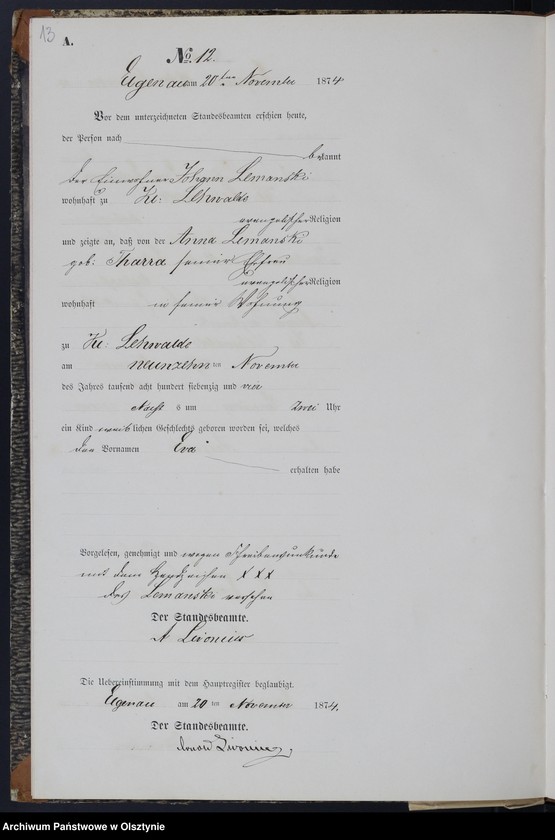 13
A.
No. 12.
Eigenau am 20ten November 1874
Vor dem unterzeichneten Standesbeamten erschien heute,
der Person nach
bekannt
der Einwohner Johann Lemanski
wohnhaft zu Kl: Lehwalde
evangelischer Religion
und zeigte an, daß von der Anna Lemanski
geb: Tharra seiner Ehefrau
evangelischer Religion
wohnhaft in seiner Wohnung
zu Kl: Lehwalde
am neunzehn ten November
des Jahres tausend acht hundert siebenzig und vier
Nacht s um Zwei Uhr
ein Kind weib lichen Geschlechts geboren worden sei, welches
den Vornamen Eva
erhalten habe
Vorgelesen, genehmigt und wegen Schreibensunkunde
mit dem Handzeichen X X X
des Lemanski versehen
Der Standesbeamte.
A
Die Uebereinstimmung mit dem Hauptregister beglaubigt.
Eigenau am 20 ten November 1874.
Der Standesbeamte.
Archiwum Państwowe w Olsztynie